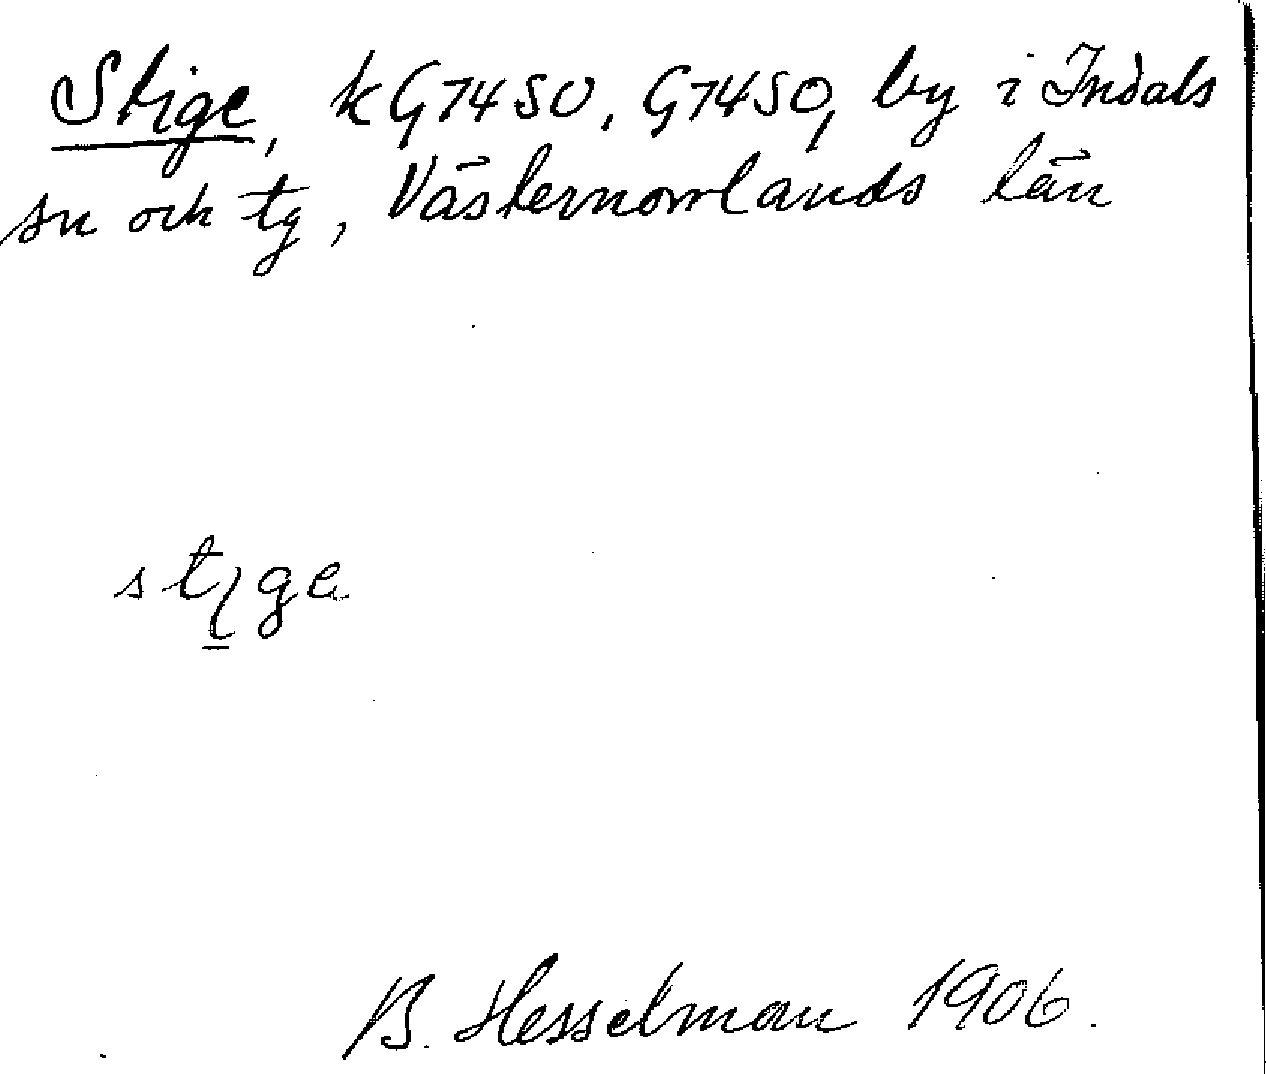 Stige, k G74 SO, G74SO, by i Indals
sn och tg, Västernorrlands län
stige
B. Hesselman 1906.